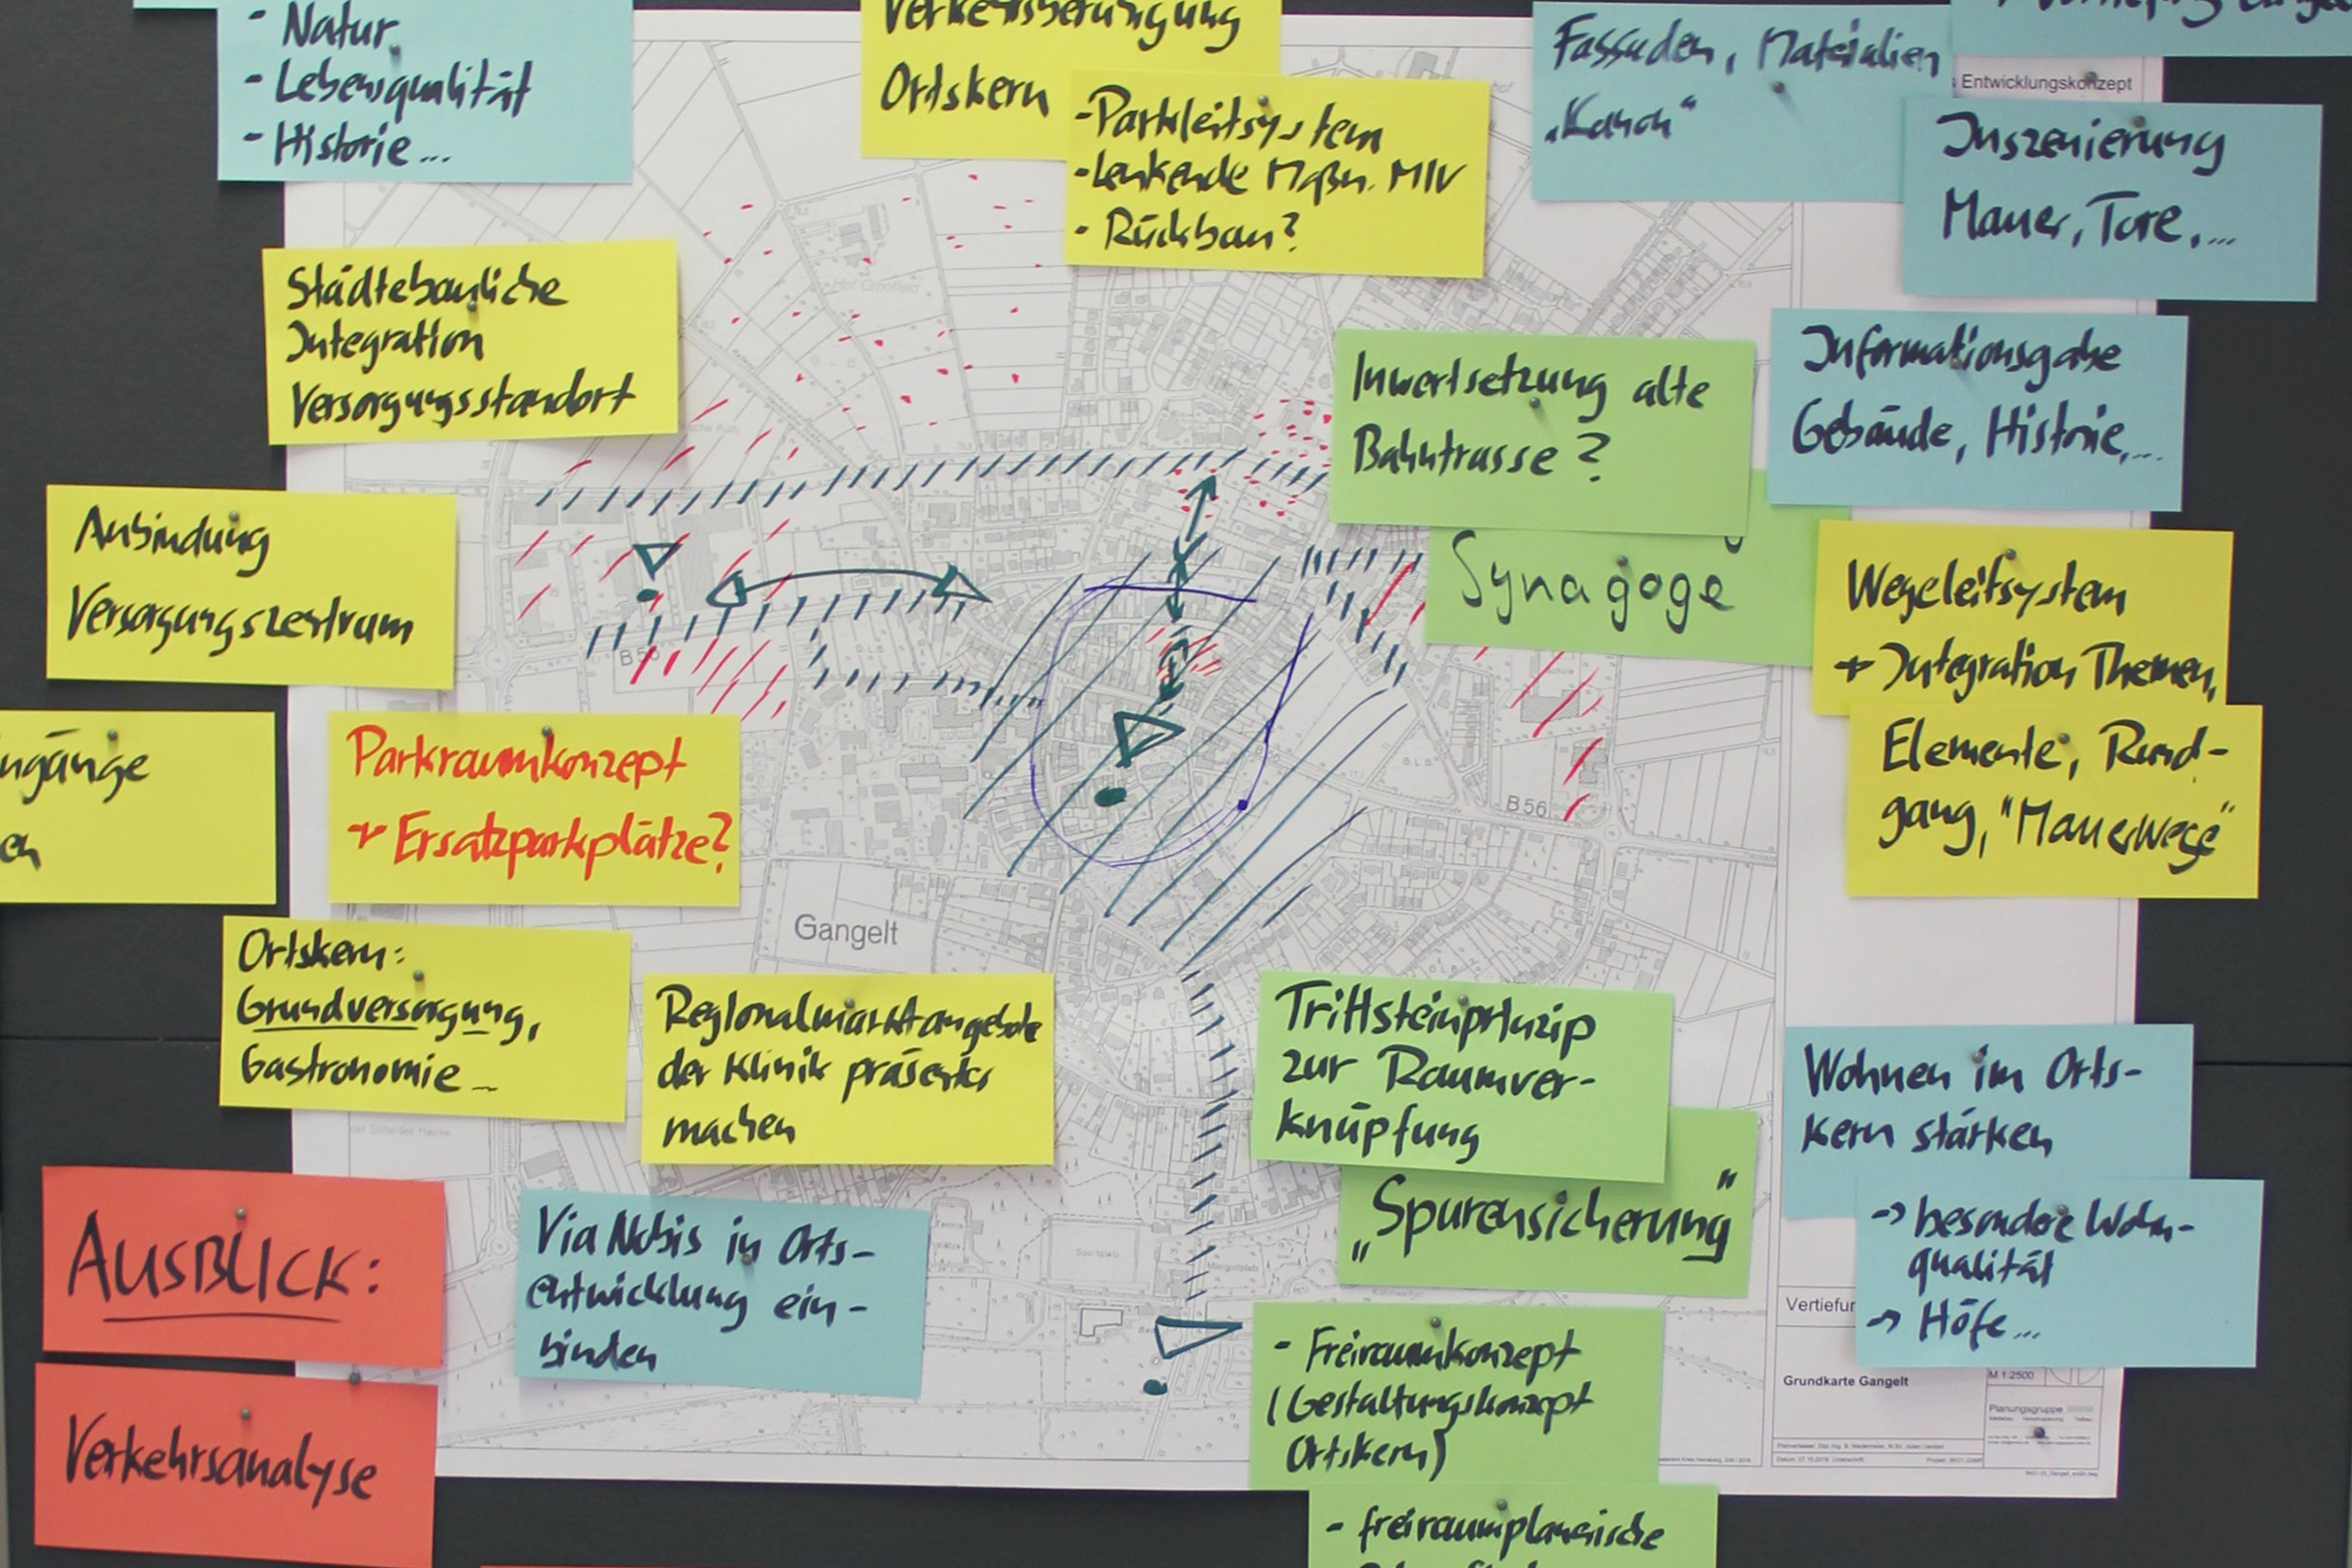 - Natur
- Lebensqualität
- Historie...
Verkehrsberuhigung
Ortskern
- Parkleitsystem
- Lenkende Maßn. MIV
- Rückbau?
Fassaden, Materialien
„Kanon“
Entwicklungskonzept
Inszenierung
Mauer, Tore,...
Städtebauliche
Integration
Versorgungsstandort
Inwertsetzung alte
Bahntrasse?
Informationsgabe
Gebäude, Historie,...
Anbindung
Versorgungszentrum
Synagoge
Wegeleitsystem
+ Integration Themen,
Elemente, Rund-
gang, "Mauerwege"
B 56
B 56
Parkraumkonzept
+ Ersatzparkplätze?
Gangelt
Ortskern:
Grundversorgung,
Gastronomie...
Regionalmarktangebote
der Klinik präsenter
machen
Trittsteinprinzip
zur Raumver-
knüpfung
„Spurensicherung“
Wohnen im Orts-
kern stärken
-> besondere Wohn-
qualität
-> Höfe...
AUSBLICK:
Verkehrsanalyse
Via Nobis in Orts-
entwicklung ein-
binden
- Freiraumkonzept
(Gestaltungskonzept
Ortskern)
- freiraumplanerische
Sportplatz
Grundkarte Gangelt
M 1:2500
Planungsgruppe MWM